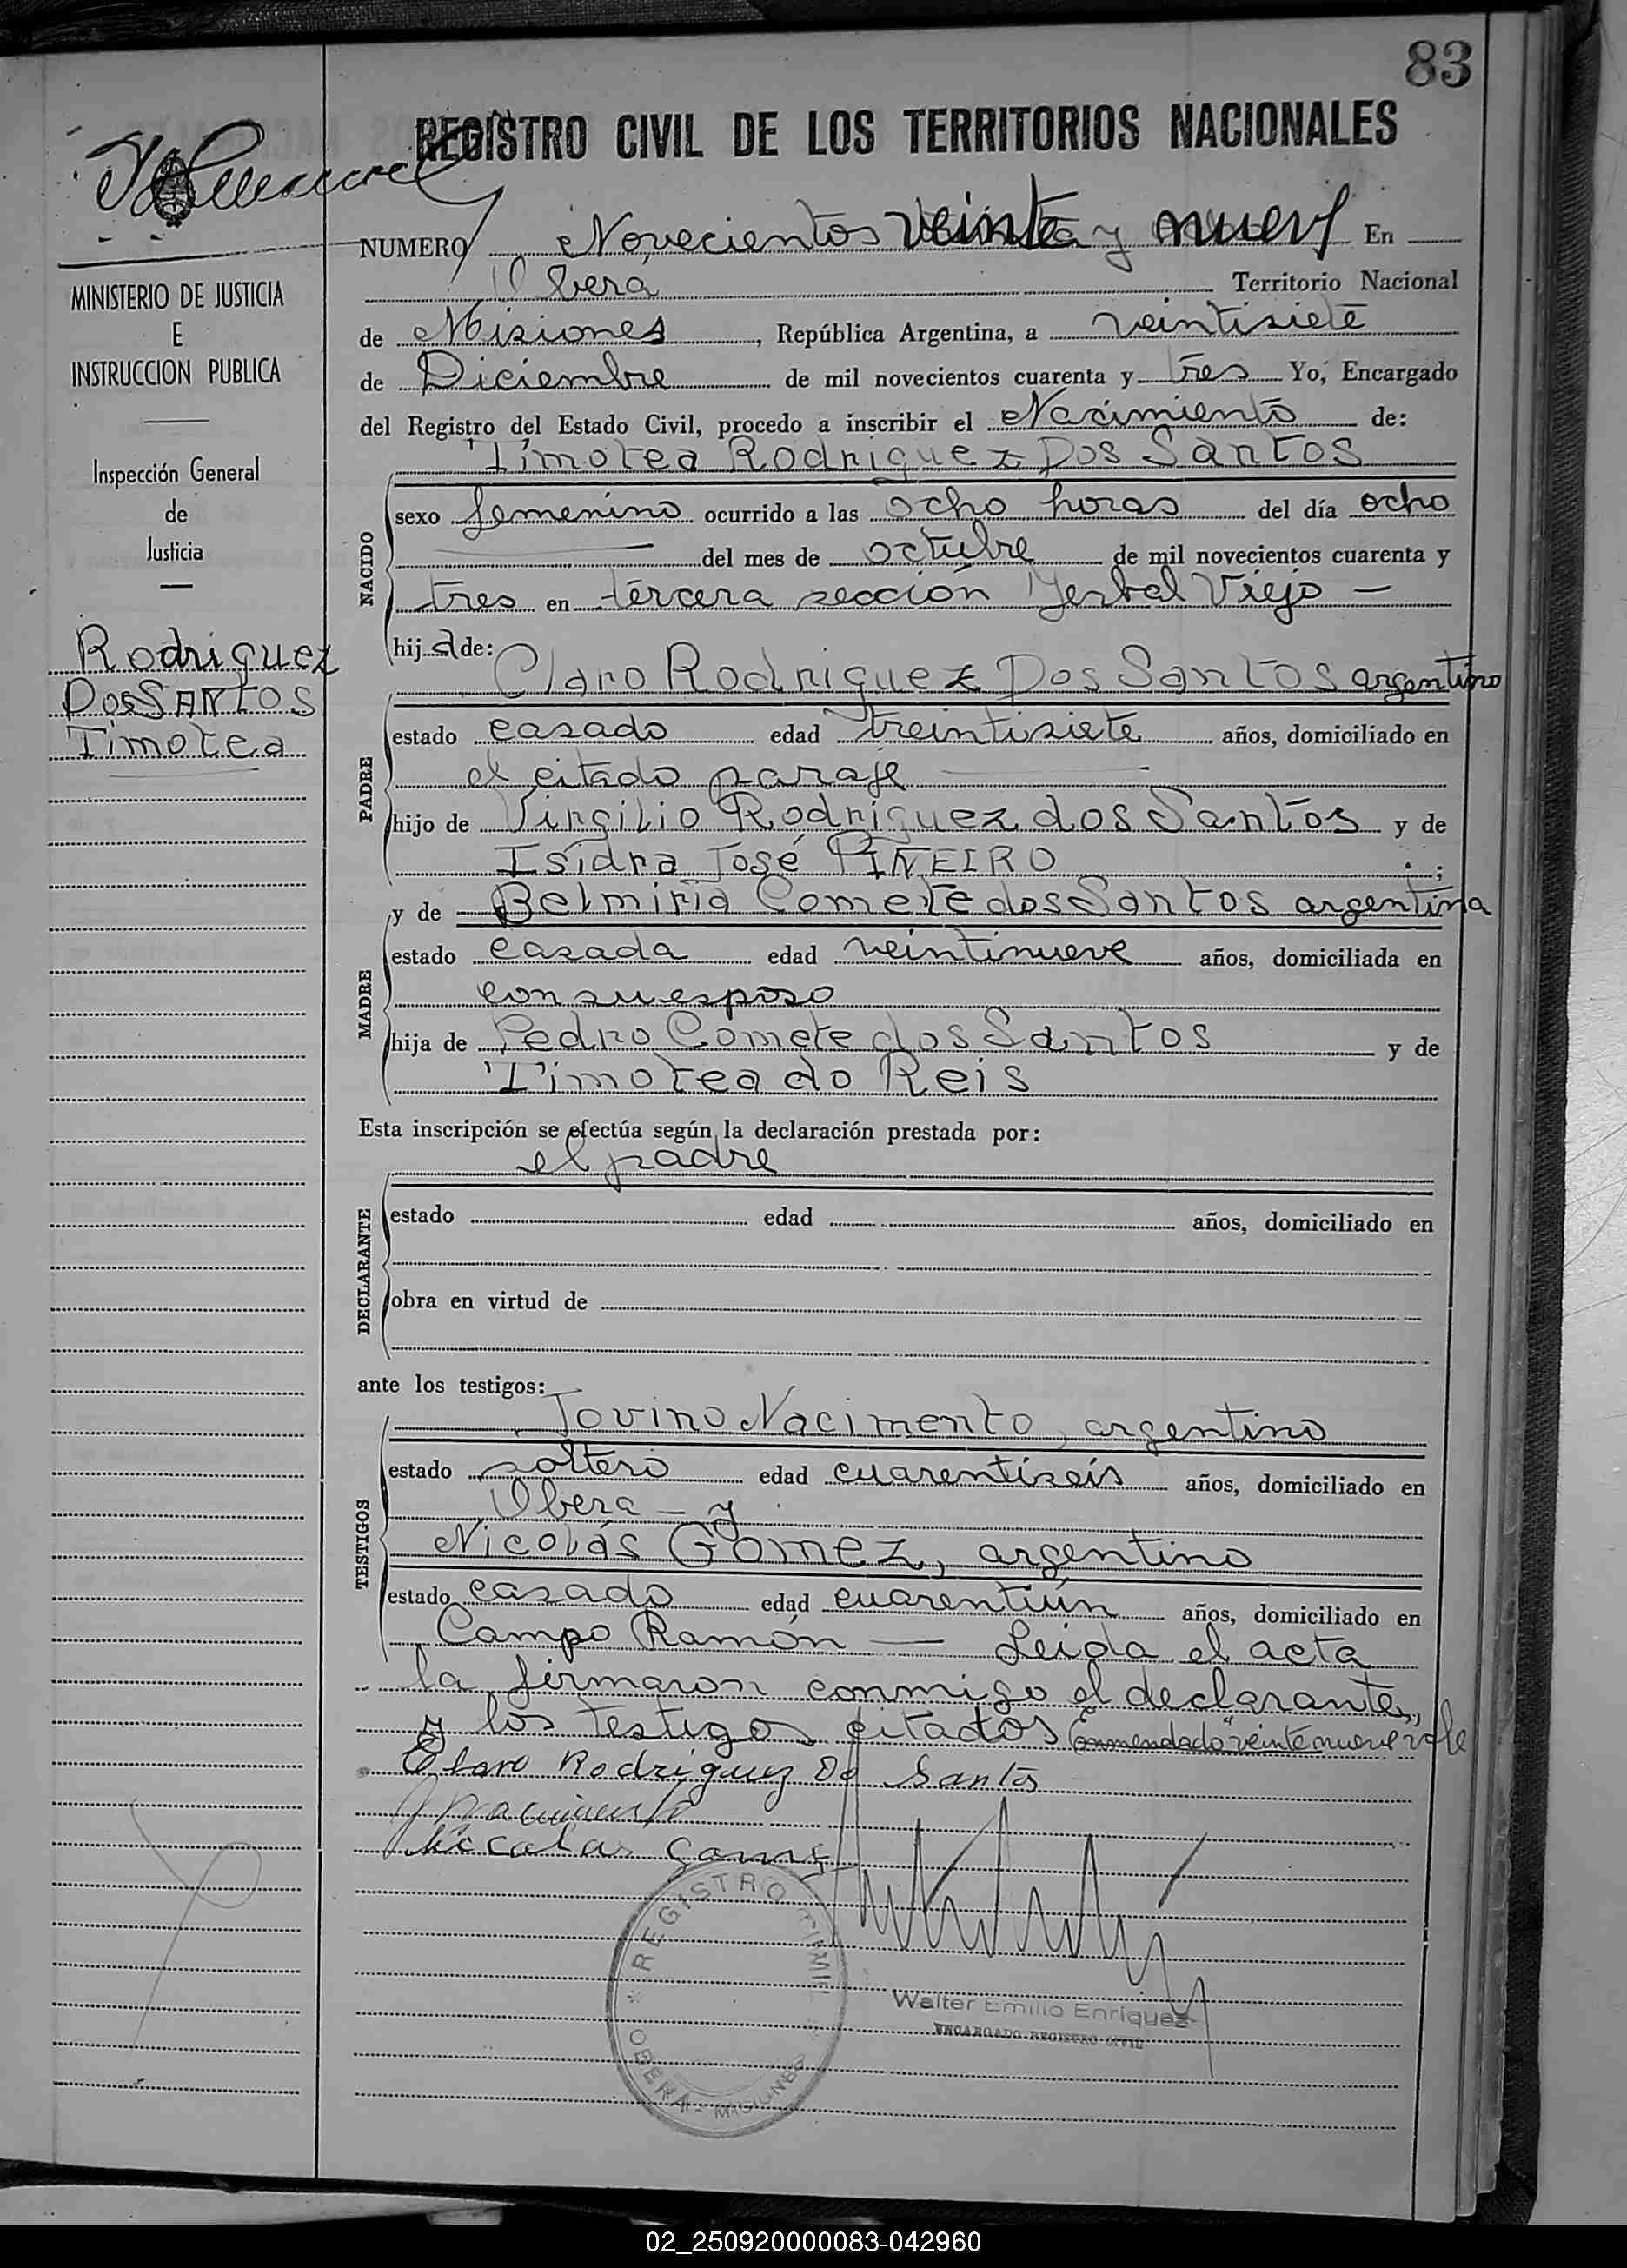 83
REGISTRO CIVIL DE LOS TERRITORIOS NACIONALES
MINISTERIO DE JUSTICIA
E
INSTRUCCION PUBLICA
Inspección General
de
Justicia
Rodriguez
Dos SANTOS
Timotea
NUMERO Novecientos veinte y nueve En
Oberá Territorio Nacional
de Misiones, República Argentina, a veintisiete
de Diciembre de mil novecientos cuarenta y tres Yo, Encargado
del Registro del Estado Civil, procedo a inscribir el Nacimiento de:
Timotea Rodriguez Dos Santos
NACIDO
sexo femenino ocurrido a las ocho horas del día ocho
del mes de octubre de mil novecientos cuarenta y
tres en tercera sección Yerbal Viejo —
hija de:
Claro Rodriguez Dos Santos argentino
PADRE
estado casado edad treintisiete años, domiciliado en
el citado paraje
hijo de Virgilio Rodriguez dos Santos y de
Isidra José PIÑEIRO ;
y de Belmiria Comete dos Santos argentina
MADRE
estado casada edad veintinueve años, domiciliada en
con su esposo
hija de Pedro Comete dos Santos y de
Timotea do Reis
Esta inscripción se efectúa según la declaración prestada por:
el padre
DECLARANTE
estado edad años, domiciliado en
obra en virtud de
ante los testigos:
Jovino Nacimento, argentino
TESTIGOS
estado soltero edad cuarentiseis años, domiciliado en
Obera — y
Nicolás Gomez, argentino
estado casado edad cuarentiún años, domiciliado en
Campo Ramón — Leida el acta
la firmaron conmigo el declarante,
y los testigos citados Enmendado "veinte nueve" vale
Claro Rodriguez Do Santos
Nicolas Gomez
REGISTRO CIVIL
OBERA - MISIONES
Walter Emilio Enriquez
ENCARGADO REGISTRO CIVIL
02_250920000083-042960